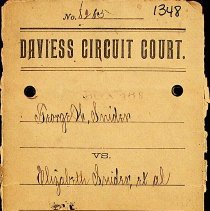 No. 6205 1348
DAVIESS CIRCUIT COURT.
George W. Snider
VS.
Elizabeth Snider, et al